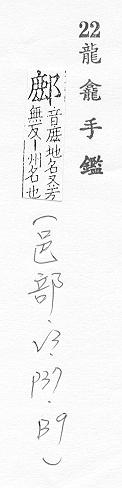 22龍龕手鑑
鄜音鹿地名又芳
無反丨州名也
(邑部.V3.P37.B9)